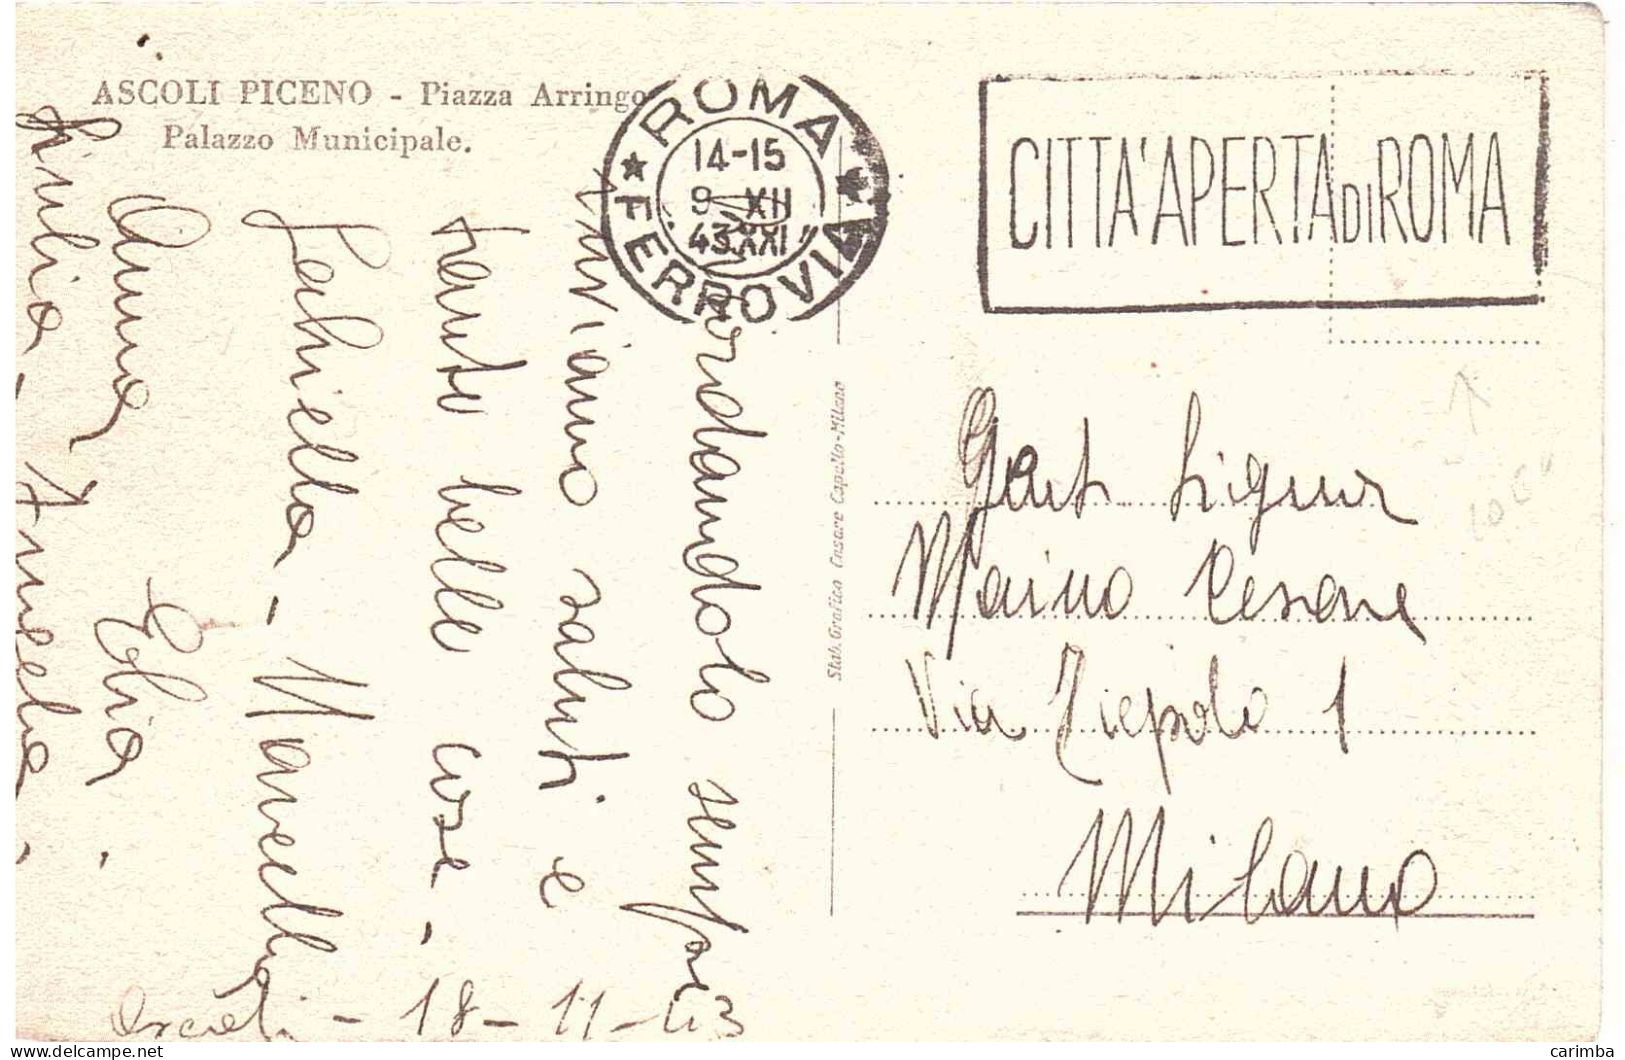 ASCOLI PICENO - Piazza Arringo
Palazzo Municipale.
ROMA
14-15
9 XII
43.XXI
FERROVIA
CITTA' APERTA DI ROMA
Stab. Grafico Cesare Capello-Milano
Gent. Signor
Marino Cesare
Via Tiepolo 1
Milano
Ascoli - 18-11-43
Ricordandolo sempre
inviamo saluti e
tante belle cose -
Marcella
Anna
carimba